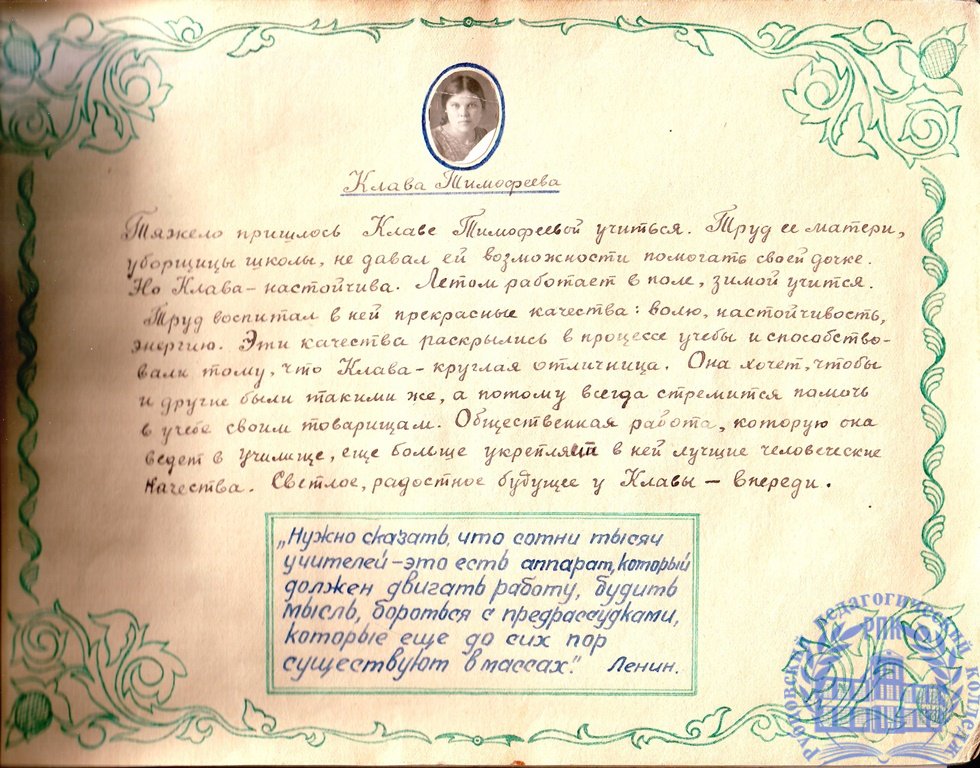 Клава Тимофеева
Тяжело пришлось Клаве Тимофеевой учиться. Труд ее матери,
уборщицы школы, не давал ей возможности помогать своей дочке.
Но Клава – настойчива. Летом работает в поле, зимой учится.
Труд воспитал в ней прекрасные качества: волю, настойчивость,
энергию. Эти качества раскрылись в процессе учебы и способство-
вали тому, что Клава – круглая отличница. Она хочет, чтобы
и другие были такими же, а потому всегда стремится помочь
в учебе своим товарищам. Общественная работа, которую она
ведет в училище, еще больше укрепляет в ней лучшие человеческие
качества. Светлое, радостное будущее у Клавы – впереди.
„Нужно сказать, что сотни тысяч
учителей – это есть аппарат, который
должен двигать работу, будить
мысль, бороться с предрассудками,
которые еще до сих пор
существуют в массах." Ленин.
педагогический колледж
РПК